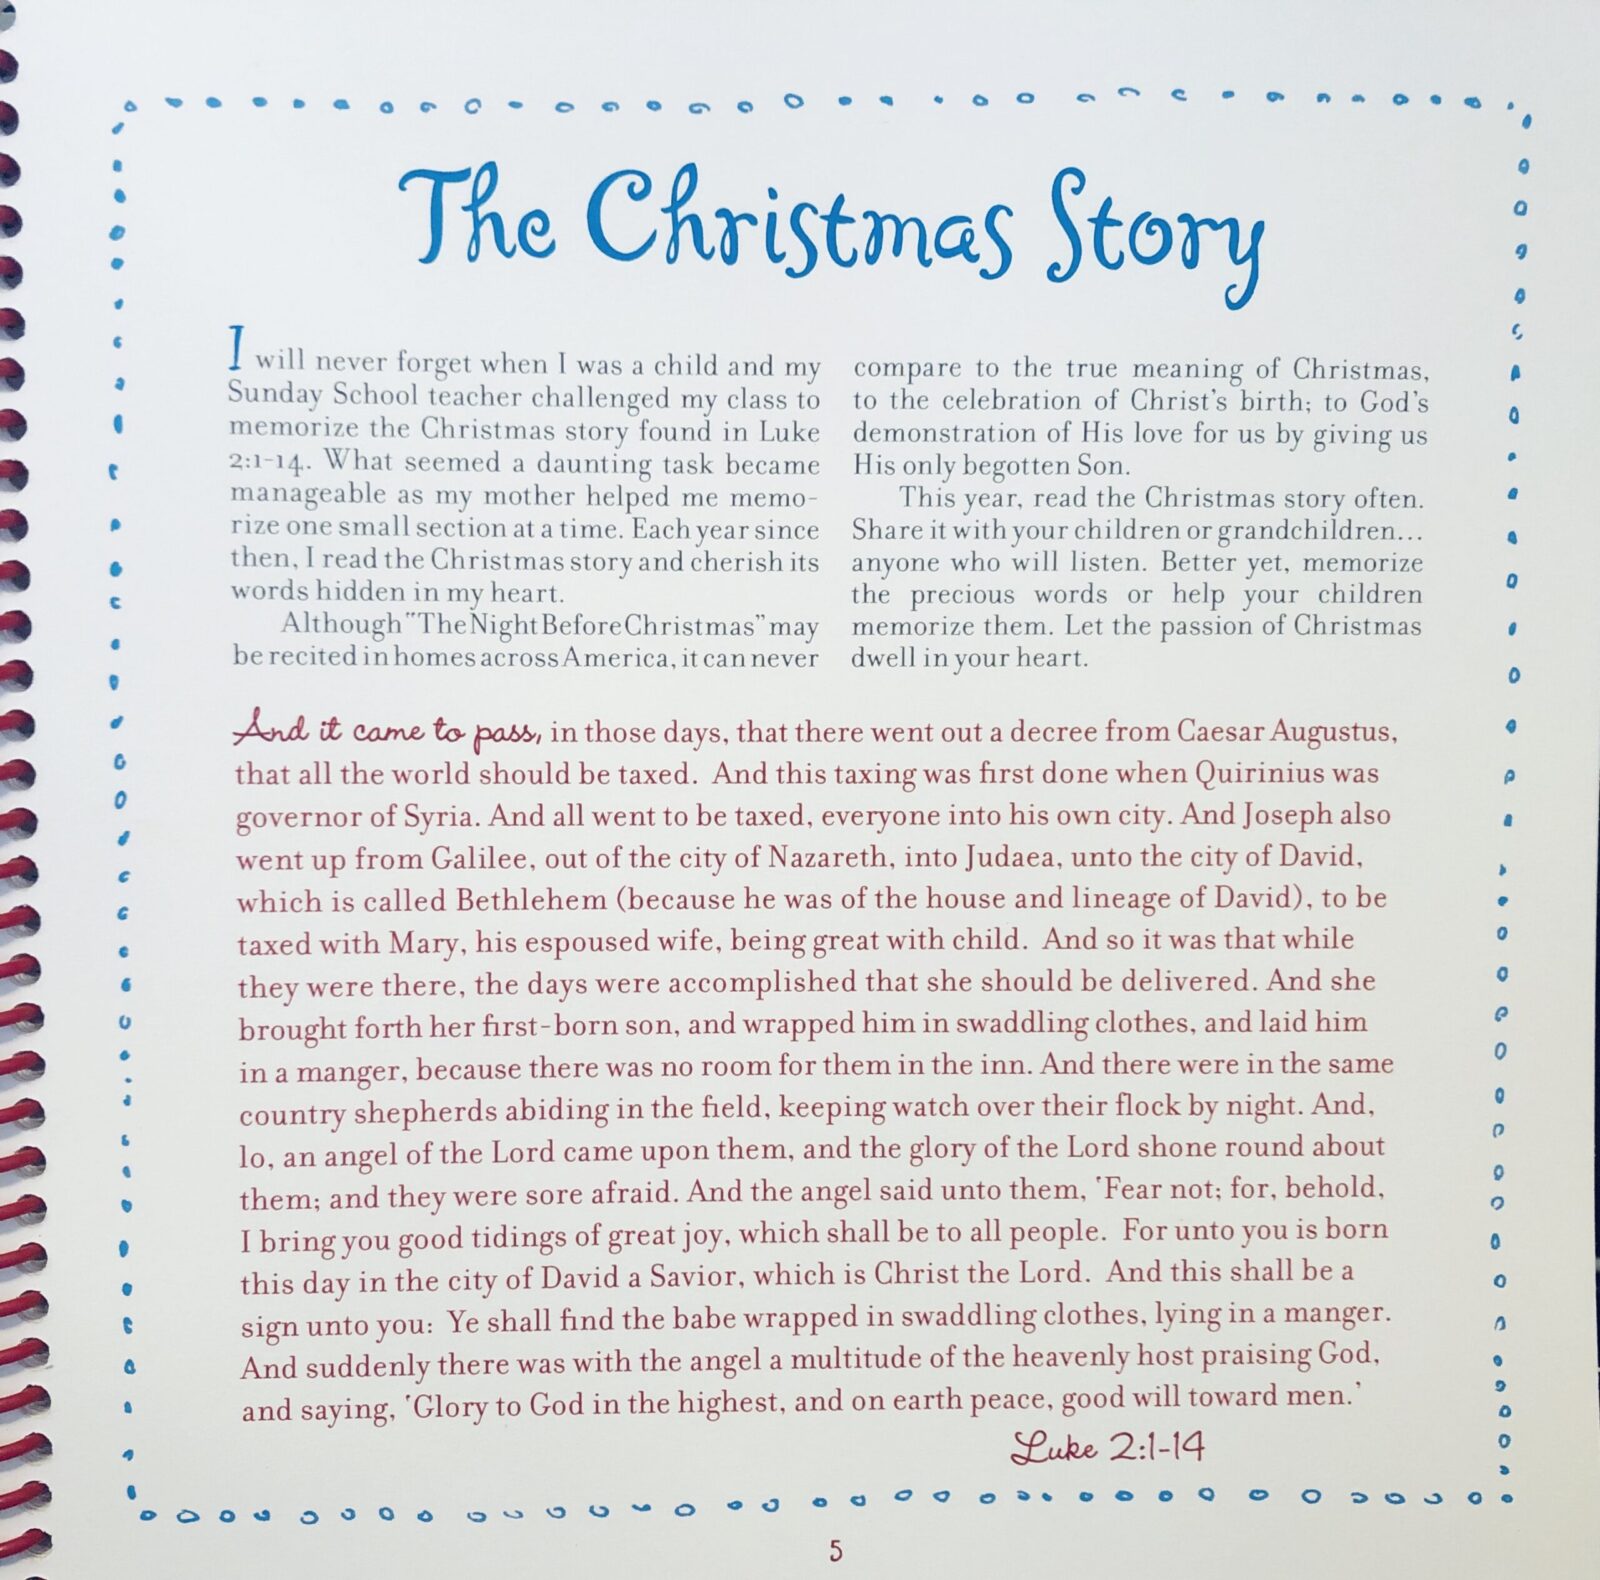 The Christmas Story
I will never forget when I was a child and my
Sunday School teacher challenged my class to
memorize the Christmas story found in Luke
2:1-14. What seemed a daunting task became
manageable as my mother helped me memo-
rize one small section at a time. Each year since
then, I read the Christmas story and cherish its
words hidden in my heart.
Although "The Night Before Christmas" may
be recited in homes across America, it can never
compare to the true meaning of Christmas,
to the celebration of Christ's birth; to God's
demonstration of His love for us by giving us
His only begotten Son.
This year, read the Christmas story often.
Share it with your children or grandchildren...
anyone who will listen. Better yet, memorize
the precious words or help your children
memorize them. Let the passion of Christmas
dwell in your heart.
And it came to pass, in those days, that there went out a decree from Caesar Augustus,
that all the world should be taxed. And this taxing was first done when Quirinius was
governor of Syria. And all went to be taxed, everyone into his own city. And Joseph also
went up from Galilee, out of the city of Nazareth, into Judaea, unto the city of David,
which is called Bethlehem (because he was of the house and lineage of David), to be
taxed with Mary, his espoused wife, being great with child. And so it was that while
they were there, the days were accomplished that she should be delivered. And she
brought forth her first-born son, and wrapped him in swaddling clothes, and laid him
in a manger, because there was no room for them in the inn. And there were in the same
country shepherds abiding in the field, keeping watch over their flock by night. And,
lo, an angel of the Lord came upon them, and the glory of the Lord shone round about
them; and they were sore afraid. And the angel said unto them, 'Fear not; for, behold,
I bring you good tidings of great joy, which shall be to all people. For unto you is born
this day in the city of David a Savior, which is Christ the Lord. And this shall be a
sign unto you: Ye shall find the babe wrapped in swaddling clothes, lying in a manger.
And suddenly there was with the angel a multitude of the heavenly host praising God,
and saying, 'Glory to God in the highest, and on earth peace, good will toward men.'
Luke 2:1-14
5